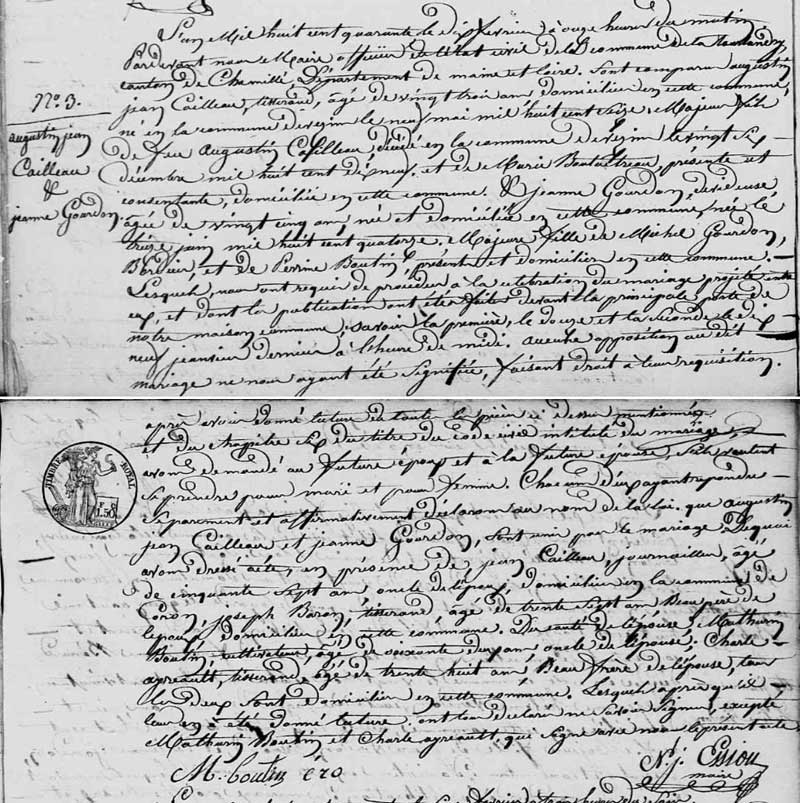 L'an Mil huit cent quarante le dix fevrier à onze heures du matin
Pardevant nous Maire officier de l'état civil de la commune de la Tourlandry,
canton de Chemillé Département de maine et loire. Sont comparu augustin
jean Cailleau, tisserand, âgé de vingt trois ans domicilié en cette commune,
né en la commune de vezin le neuf mai mil huit cent seize, Majeur fils
de feu Augustin Cailleau décédé en la commune de vezin le vingt sep
décembre mil huit cent dix neuf, et de Marie présente et
consentante, domiciliée en cette commune. & jeanne Gourdon,
âgée de vingt cinq ans, née et domiciliée en cette commune, née le
treize juin mil huit cent quatorze. Majeure fille de Michel Gourdon,
Bordier, et de Perrine Boutin, présents et domiciliés en cette commune. —
Lesquels, nous ont requis de procéder à la célébration du mariage projeté entre
eux, et dont les publications ont étés faites devant la principale porte de
notre maison commune; savoir la première, le douze et la seconde le dix —
neuf janvier dernier à l'heure de midi. aucune opposition au dit —
mariage ne nous ayant été signifiée, faisant droit à leur requisition.
No. 3.
augustin jean
Cailleau
&
jeanne Gourdon.
après avoir donné lecture de toutes les pièces ci dessus mentionnées
et du chapitre six du titre du code civil intitulé du mariage,
avons demandé au futur époux et à la future épouse, s'ils veulent
se prendre pour mari et pour femme. Chacun d'eux ayant repondu —
séparément et affirmativement déclarons au nom de la loi. que augustin
jean Cailleau et jeanne Gourdon, sont unis par le mariage. De quoi
avons dressé acte, en présence de jean Cailleau, journalier, âgé
de cinquante sept ans, oncle de l'époux, domicilié en la commune de
Coron, joseph Baron, tisserand âgé de trente sept ans Beau père de
l'époux, domicilié en cette commune. Du coté de l'épouse, Mathurin
Boutin, cultivateur, âgé de soixante deux ans oncle de l'épouse; Charle
apreault, tisserand, âgé de trente huit ans, Beau frère de l'épouse, tous
les deux sont domiciliés en cette commune. Lesquels après qu'il —
leur en a été donné lecture. ont tous declaré ne savoir signer, excepté
Mathurin Boutin et Charle apreault, qui signe avec nous le présent acte
M. boutin
N. j. Essou
maire
TIMBRE ROYAL
1.50